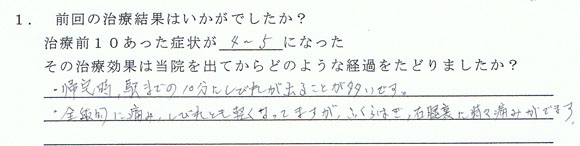 1. 前回の治療結果はいかがでしたか？
治療前１０あった症状が 4～5 になった
その治療効果は当院を出てからどのような経過をたどりましたか？
・帰宅時、駅までの10分にしびれが出ることが多いです。
・全般的に痛み、しびれとも軽くなってますが、ふくらはぎ、右膝裏に時々痛みがでます。